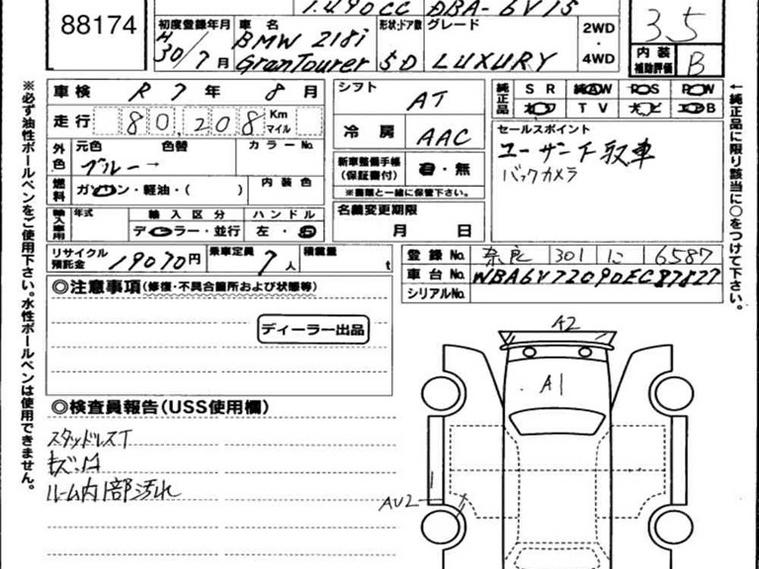 1.490CC DBA-6V15
88174
初度登録年月 車名 形状・ドア数 グレード 2WD
H30/7月 BMW 218i GranTourer 5D LUXURY ・4WD
3.5
内装補助評価 B
車検 R7年8月
シフト AT
純正品 SR AW PS PW
TV エアB
走行 80,208 Km マイル
冷房 AAC
セールスポイント
ユーザー下取車
バックカメラ
外色 元色 色替 カラーNo.
ブルー→
新車整備手帳(保証書付) 有・無
※書類と一緒に保管下さい。
燃料 ガソリン・軽油・( ) 内装色
輸入車用 年式 輸入区分 ハンドル
ディーラー・並行 左・右
名義変更期限
月 日
リサイクル預託金 19070円 乗車定員 7人 積載量 t
登録No. 奈良 301 に 6587
車台No. WBA6V72090EC87827
シリアルNo.
◎注意事項(修復・不具合個所および状態等)
ディーラー出品
◎検査員報告(USS使用欄)
スタッドレスT
キズ凹
ルーム内1部汚れ
A2
A1
AU2
※必ず油性ボールペンをご使用下さい。水性ボールペンは使用できません。
←純正品に限り該当に○をつけて下さい。